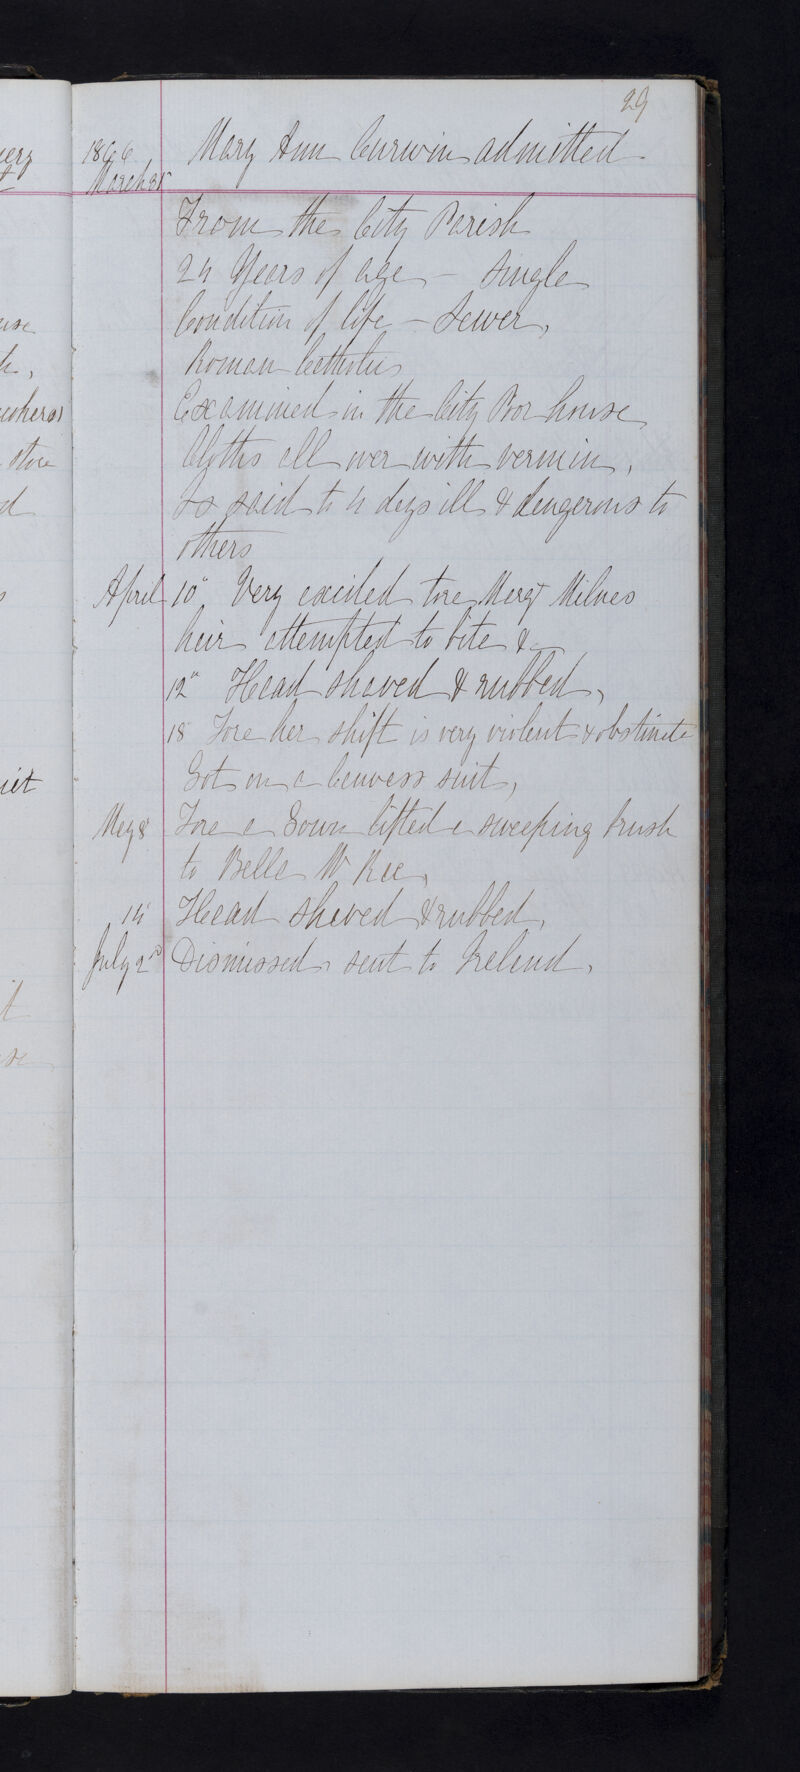 29
1866 Mary Ann Curwin admitted
March 31
From the City Parish
24 Years of age - Single
Condition of life - Sewer,
Roman Catholic
Examined in the City Poor house
Cloths all over with vermin,
Is said to 4 days ill & dangerous to
others
April 10" Very excited tore Margt Milnes
hair attempted to bite &c
12" Head shaved & rubbed,
18 Tore her shift is very violent & obstinate
Got on a Canvass suit,
May 8 Tore a Gown lifted a sweeping brush
to Bella Mc Kee,
14 Head shaved & rubbed,
July 2nd Dismissed sent to Ireland,